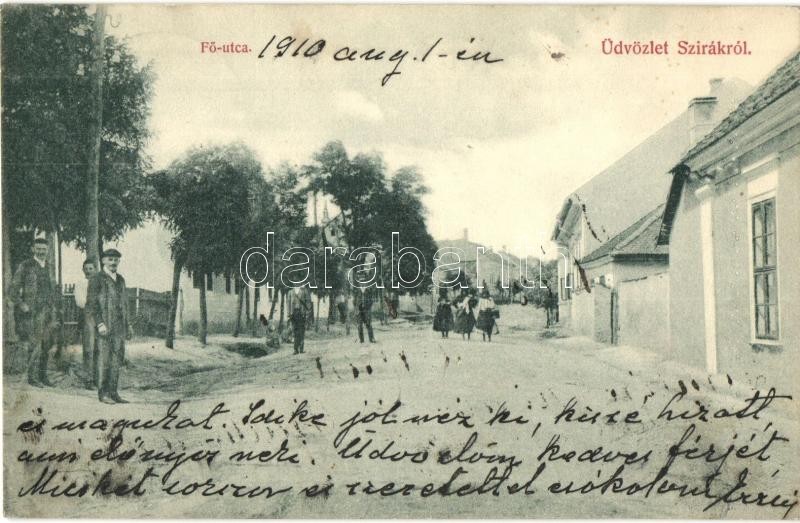 Fő-utca. 1910 aug. 1-én
Üdvözlet Szirákról.
darabanth
és magukat. Idike jól néz ki, kissé hízott,
ami előnyös neki. Üdvözlöm kedves férjét
Miskét és szeretettel csókolom